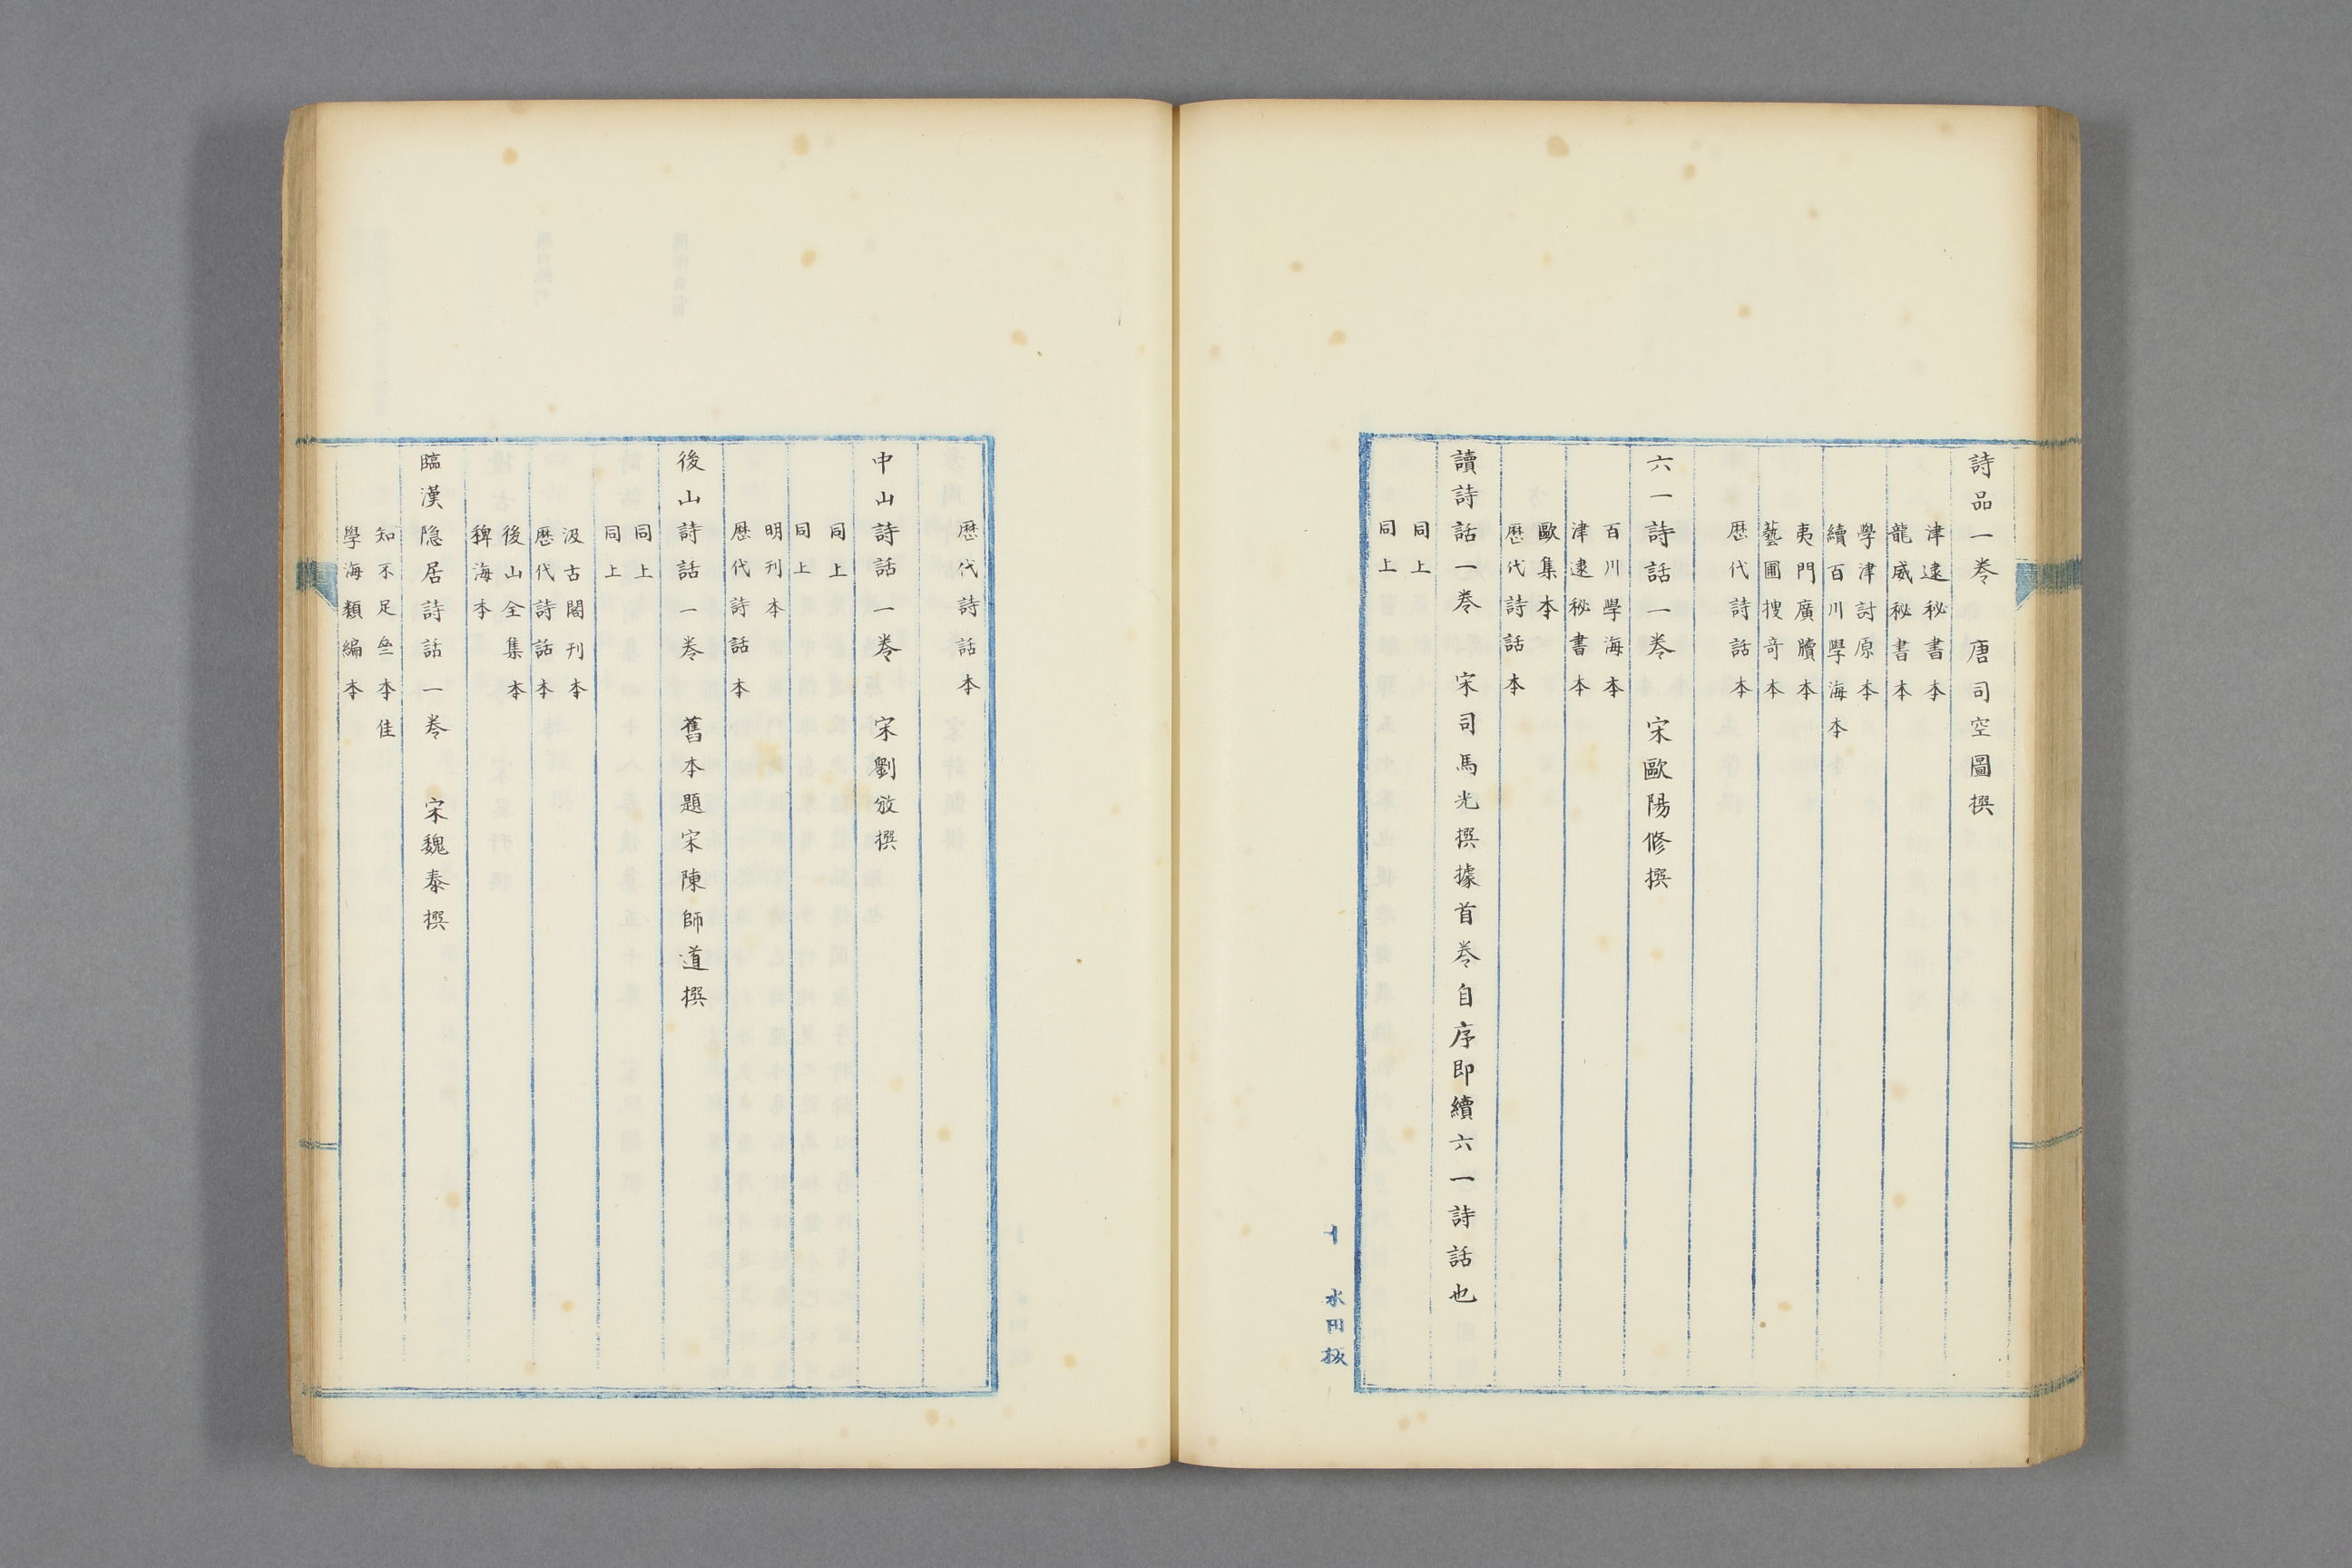 詩品一卷　唐司空圖撰
津逮秘書本
龍威秘書本
學津討原本
續百川學海本
夷門廣牘本
藝圃搜奇本
歴代詩話本
六一詩話一卷　宋歐陽修撰
百川學海本
津逮秘書本
歐集本
歴代詩話本
讀詩話一卷　宋司馬光撰據首卷自序即續六一詩話也
同上
同上
歴代詩話本
中山詩話一卷　宋劉攽撰
同上
同上
明刊本
歴代詩話本
後山詩話一卷　舊本題宋陳師道撰
同上
同上
汲古閣刊本
歴代詩話本
後山全集本
稗海本
臨漢隐居詩話一卷　宋魏泰撰
知不足叁本佳
學海類編本